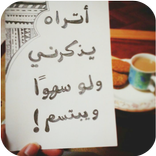 أتراه
يذكرني
ولو سهوًا
ويبتسم!